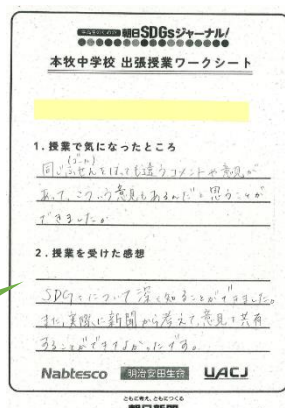 朝日SDGsジャーナル!
本牧中学校 出張授業ワークシート
1.授業で気になったところ
同じふせんをはっても違うコメントや意見が
あって、こういう意見もあるんだと思うことが
できました。
2.授業を受けた感想
SDGsについて深く知ることができました。
また、実際に新聞から考えて、意見を共有
することができてよかったです。
Nabtesco 明治安田生命 UACJ
ともに考え、ともにつくる
朝日新聞